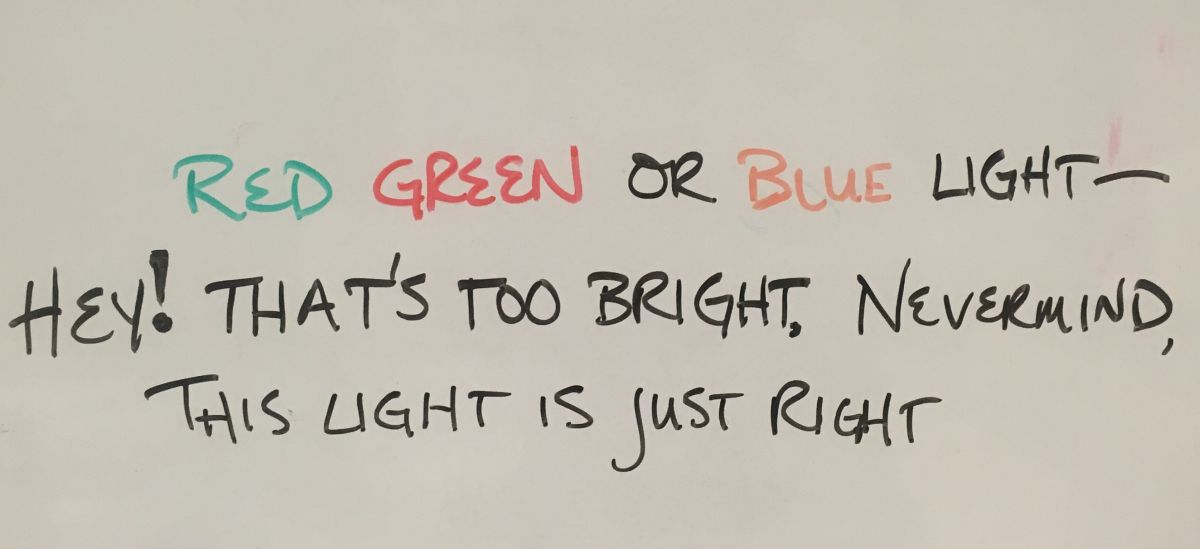 RED GREEN OR BLUE LIGHT—
HEY! THAT'S TOO BRIGHT. NEVERMIND,
THIS LIGHT IS JUST RIGHT